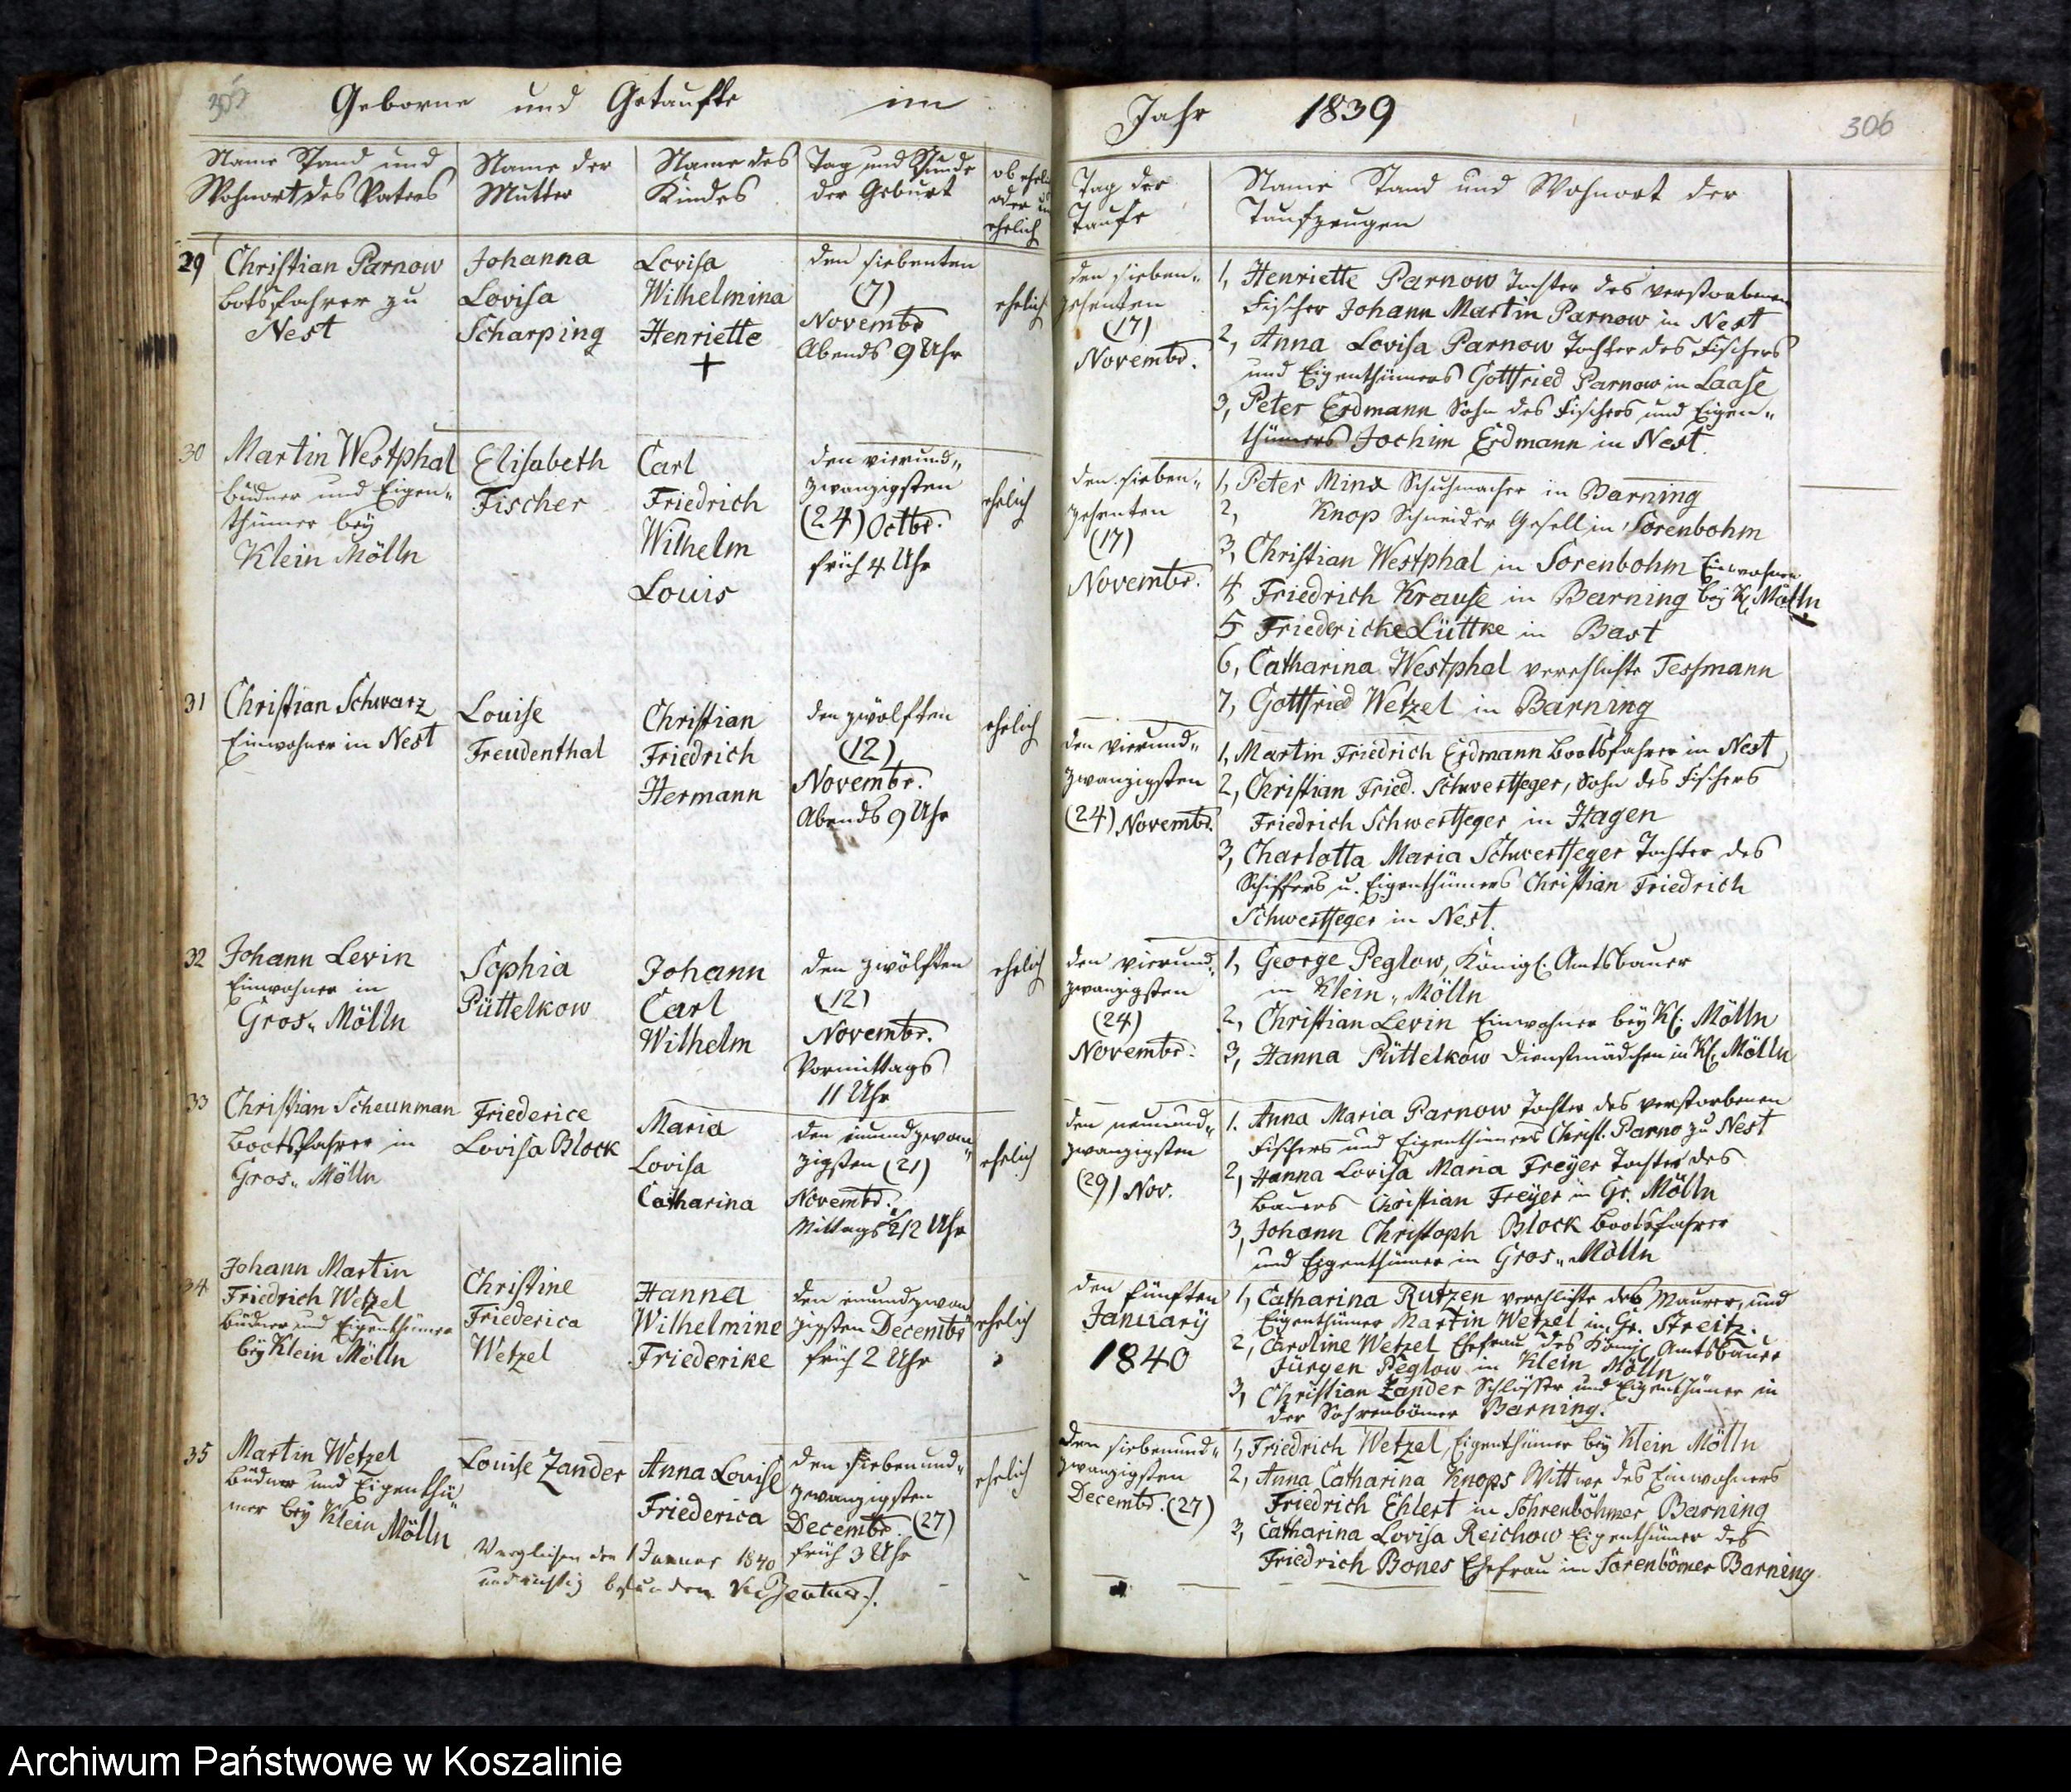 Geborne und Getaufte im
Jahr 1839
306
Name Stand und
Wohnort des Vaters
Name der
Mutter
Name des
Kindes
Tag und Stunde
der Geburt
ob ehelich
oder un
ehelich
Tag der
Taufe
Name Stand und Wohnort der
Taufzeugen
29
Christian Parnow
Botsfahrer zu
Nest
Johanna
Lovisa
Scharping
Lovisa
Wilhelmina
Henriette
+
den siebenten
(7)
Novembr
Abends 9 Uhr
ehelich
den sieben-
zehenten
(17)
Novembr.
1, Henriette Parnow Tochter des verstorbenen
Fischer Johann Martin Parnow in Nest
2, Anna Lovisa Parnow Tochter des Fischers
und Eigenthümers Gottfried Parnow in Laase
3, Peter Erdmann Sohn des Fischers und Eigen-
thümers Jochim Erdmann in Nest.
30
Martin Westphal
Büdner und Eigen-
thümer bey
Klein Mölln
Elisabeth
Fischer
Carl
Friedrich
Wilhelm
Louis
den vierund-
zwanzigsten
(24) Octbr.
früh 4 Uhr
ehelich
den sieben-
zehenten
(17)
Novembr.
1, Peter Minx Schuhmacher in Barning
2, Knop Schneider Gesell in Sorenbohm
3, Christian Westphal in Sorenbohm Einwohner
4 Friedrich Krause in Barning bey Kl. Mölln
5 Friedericke Lüttke in Bast
6, Catharina Westphal verehlichte Tessmann
7, Gottfried Wetzel in Barning
31
Christian Schwarz
Einwohner in Nest
Louise
Freudenthal
Christian
Friedrich
Hermann
den zwölften
(12)
Novembr.
Abends 9 Uhr
ehelich
den vierund-
zwanzigsten
(24) Novembr.
1, Martin Friedrich Erdmann Bootsfahrer in Nest
2, Christian Fried. Schwertfeger, Sohn des Fischers
Friedrich Schwertfeger in Hagen
3, Charlotta Maria Schwertfeger Tochter des
Schiffers u. Eigenthümers Christian Friedrich
Schwertfeger in Nest.
32
Johann Levin
Einwohner in
Gros- Mölln
Sophia
Püttelkow
Johann
Carl
Wilhelm
den zwölften
(12)
Novembr.
Vormittags
11 Uhr
ehelich
den vierund-
zwanzigsten
(24)
Novembr.
1, George Peglow, Königl. Amtsbauer
in Klein- Mölln
2, Christian Levin Einwohner bey Kl. Mölln
3, Hanna Püttelkow Dienstmädchen in Kl. Mölln
33
Christian Scheunman
Bootsfahrer in
Gros- Mölln
Friederice
Lovisa Block
Maria
Lovisa
Catharina
den einundzwan-
zigsten (21)
Novembr.
Mittags 1/2 12 Uhr
ehelich
den neunund-
zwanzigsten
(29) Nov.
1. Anna Maria Parnow Tochter des verstorbenen
Fischers und Eigenthümers Christ. Parno zu Nest
2, Hanna Lovisa Maria Freyer Tochter des
Bauers Christian Freyer in Gr. Mölln
3, Johann Christoph Block Bootsfahrer
und Eigenthümer in Gros- Mölln
34
Johann Martin
Friedrich Wetzel
Büdner und Eigenthümer
bey Klein Mölln
Christine
Friederica
Wetzel
Hanna
Wilhelmine
Friederike
den einundzwan
zigsten Decembr
früh 2 Uhr
ehelich
den fünften
Januarÿ
1840
1, Catharina Rutzen verehlichte des Maurer, und
Eigenthümer Martin Wetzel in Gr. Streitz.
2, Caroline Wetzel Ehefrau des Königl Amtsbauer
Jürgen Peglow in Klein Mölln
3, Christian Zander Schlösser und Eigenthümer in
der Sohrenbömer Barning.
35
Martin Wetzel
Büdner und Eigenthü-
mer bey Klein Mölln
Louise Zander
Anna Lovise
Friederica
den siebenund-
zwanzigsten
Decembr. (27)
früh 3 Uhr
ehelich
den siebenund-
zwanzigsten
Decembr. (27)
1, Friedrich Wetzel, Eigenthümer bey Klein Mölln
2, Anna Catharina Knops Wittwe des Einwohners
Friedrich Ehlert in Sohrenböhmer Barning
3, Catharina Lovisa Reichow Eigenthümer des
Friedrich Bones Ehefrau im Sorenbömer Barning
Verglichen den 1 Januar 1840
und richtig befunden
Archiwum Państwowe w Koszalinie